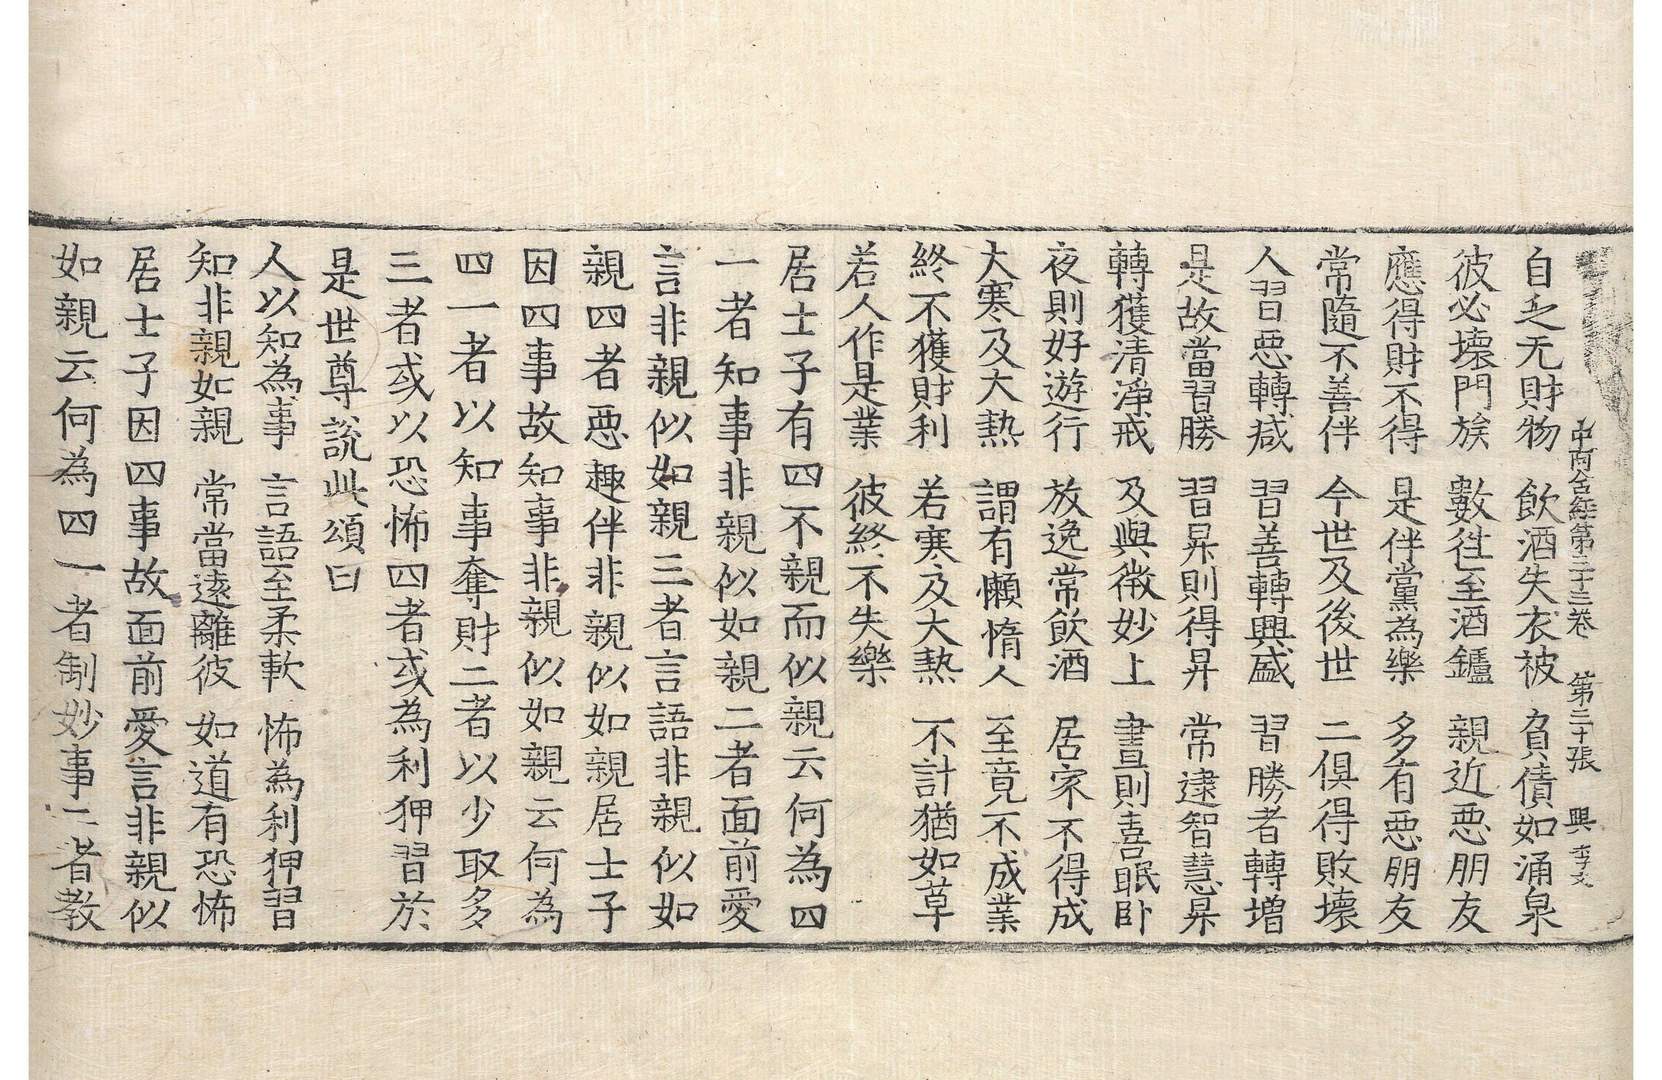 中阿含經第三十三卷 第二十張 興 李文
自乏无財物 飲酒失衣被 負債如涌泉
彼必壞門族 數往至酒鑪 親近惡朋友
應得財不得 是伴黨為樂 多有惡朋友
常隨不善伴 今世及後世 二俱得敗壞
人習惡轉減 習善轉興盛 習勝者轉增
是故當習勝 習昇則得昇 常逮智慧昇
轉獲清淨戒 及與微妙上 晝則喜眠卧
夜則好遊行 放逸常飲酒 居家不得成
大寒及大熱 謂有懶惰人 至竟不成業
終不獲財利 若寒及大熱 不計猶如草
若人作是業 彼終不失樂
居士子有四不親而似親云何為四
一者知事非親似如親二者面前愛
言非親似如親三者言語非親似如
親四者惡趣伴非親似如親居士子
因四事故知事非親似如親云何為
四一者以知事奪財二者以少取多
三者或以恐怖四者或為利狎習於
是世尊說此頌曰
人以知為事 言語至柔軟 怖為利狎習
知非親如親 常當遠離彼 如道有恐怖
居士子因四事故面前愛言非親似
如親云何為四一者制妙事二者教